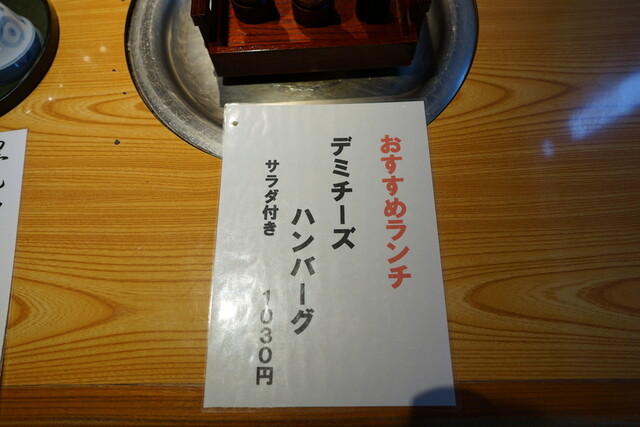 おすすめランチ
デミチーズ
ハンバーグ
サラダ付き
1030円